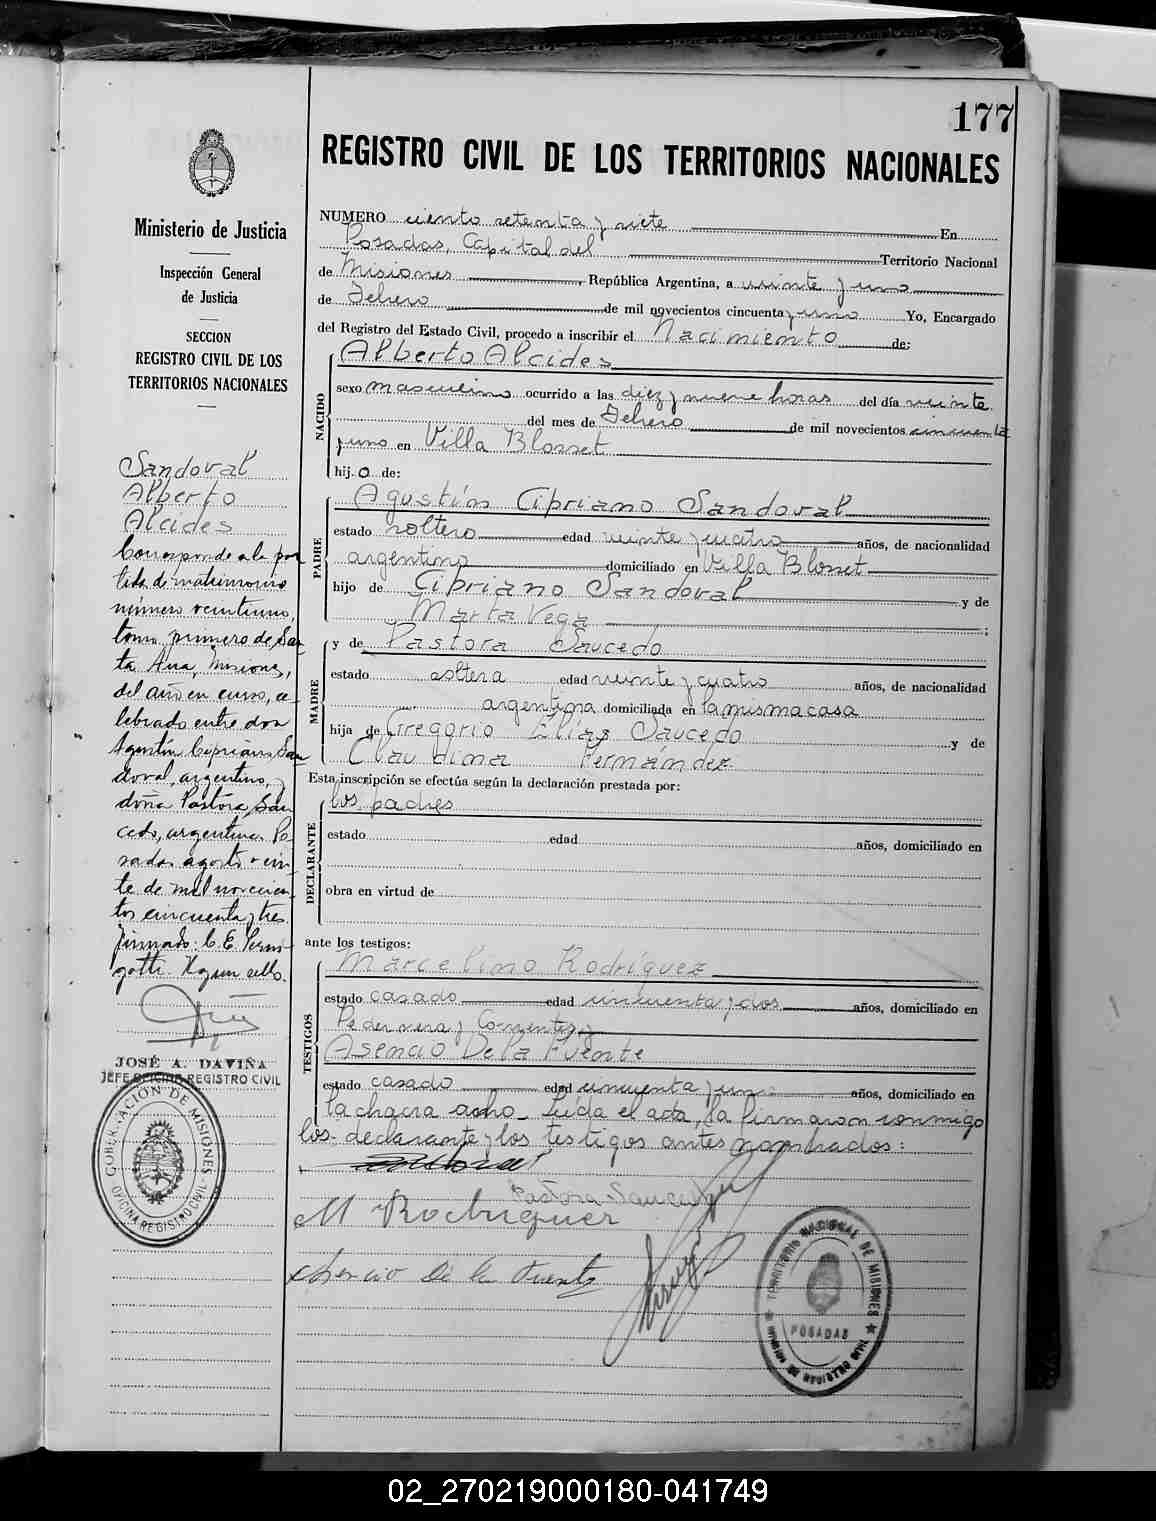 177
REGISTRO CIVIL DE LOS TERRITORIOS NACIONALES
Ministerio de Justicia
Inspección General
de Justicia
SECCION
REGISTRO CIVIL DE LOS
TERRITORIOS NACIONALES
Sandoval
Alberto
Alcides
Corresponde a la par
tida de matrimonio
número veintiuno,
tomo primero de San
ta Ana, Misiones,
del año en curso, ce
lebrado entre don
Agustín Cipriano San
doval, argentino, y
doña Pastora Sau
cedo, argentina. Po
sadas agosto vein
te de mil novecien
tos cincuenta y tres.
firmado: C. E. Perni
gotti. Hay un sello.
JOSÉ A. DAVIÑA
JEFE OFICINA REGISTRO CIVIL
GOBERNACIÓN DE MISIONES
OFICINA REGISTRO CIVIL
NUMERO ciento setenta y siete En
Posadas, Capital del Territorio Nacional
de Misiones, República Argentina, a veinte y uno
de Febrero de mil novecientos cincuenta y uno Yo, Encargado
del Registro del Estado Civil, procedo a inscribir el Nacimiento de:
NACIDO
Alberto Alcides
sexo masculino ocurrido a las diez y nueve horas del día veinte
del mes de Febrero de mil novecientos cincuenta
y uno en Villa Blosset
hijo de:
PADRE
Agustín Cipriano Sandoval
estado soltero edad veinte y cuatro años, de nacionalidad
argentino domiciliado en Villa Blosset
hijo de Cipriano Sandoval y de
Marta Vega ;
MADRE
y de Pastora Saucedo
estado soltera edad veinte y cuatro años, de nacionalidad
argentina domiciliada en la misma casa
hija de Gregorio Elías Saucedo y de
Claudina Fernández
Esta inscripción se efectúa según la declaración prestada por:
DECLARANTE
los padres
estado edad años, domiciliado en
obra en virtud de
ante los testigos:
TESTIGOS
Marcelino Rodríguez
estado casado edad cincuenta y dos años, domiciliado en
Pedernera y Corrientes y
Asencio De la Fuente
estado casado edad cincuenta y uno años, domiciliado en
la chacra ocho. Leída el acta, la firmaron conmigo
los declarante y los testigos antes nombrados:
Sandoval
Pastora Saucedo
M Rodriguez
Asencio de la Fuente
TERRITORIO NACIONAL DE MISIONES
POSADAS
02_270219000180-041749